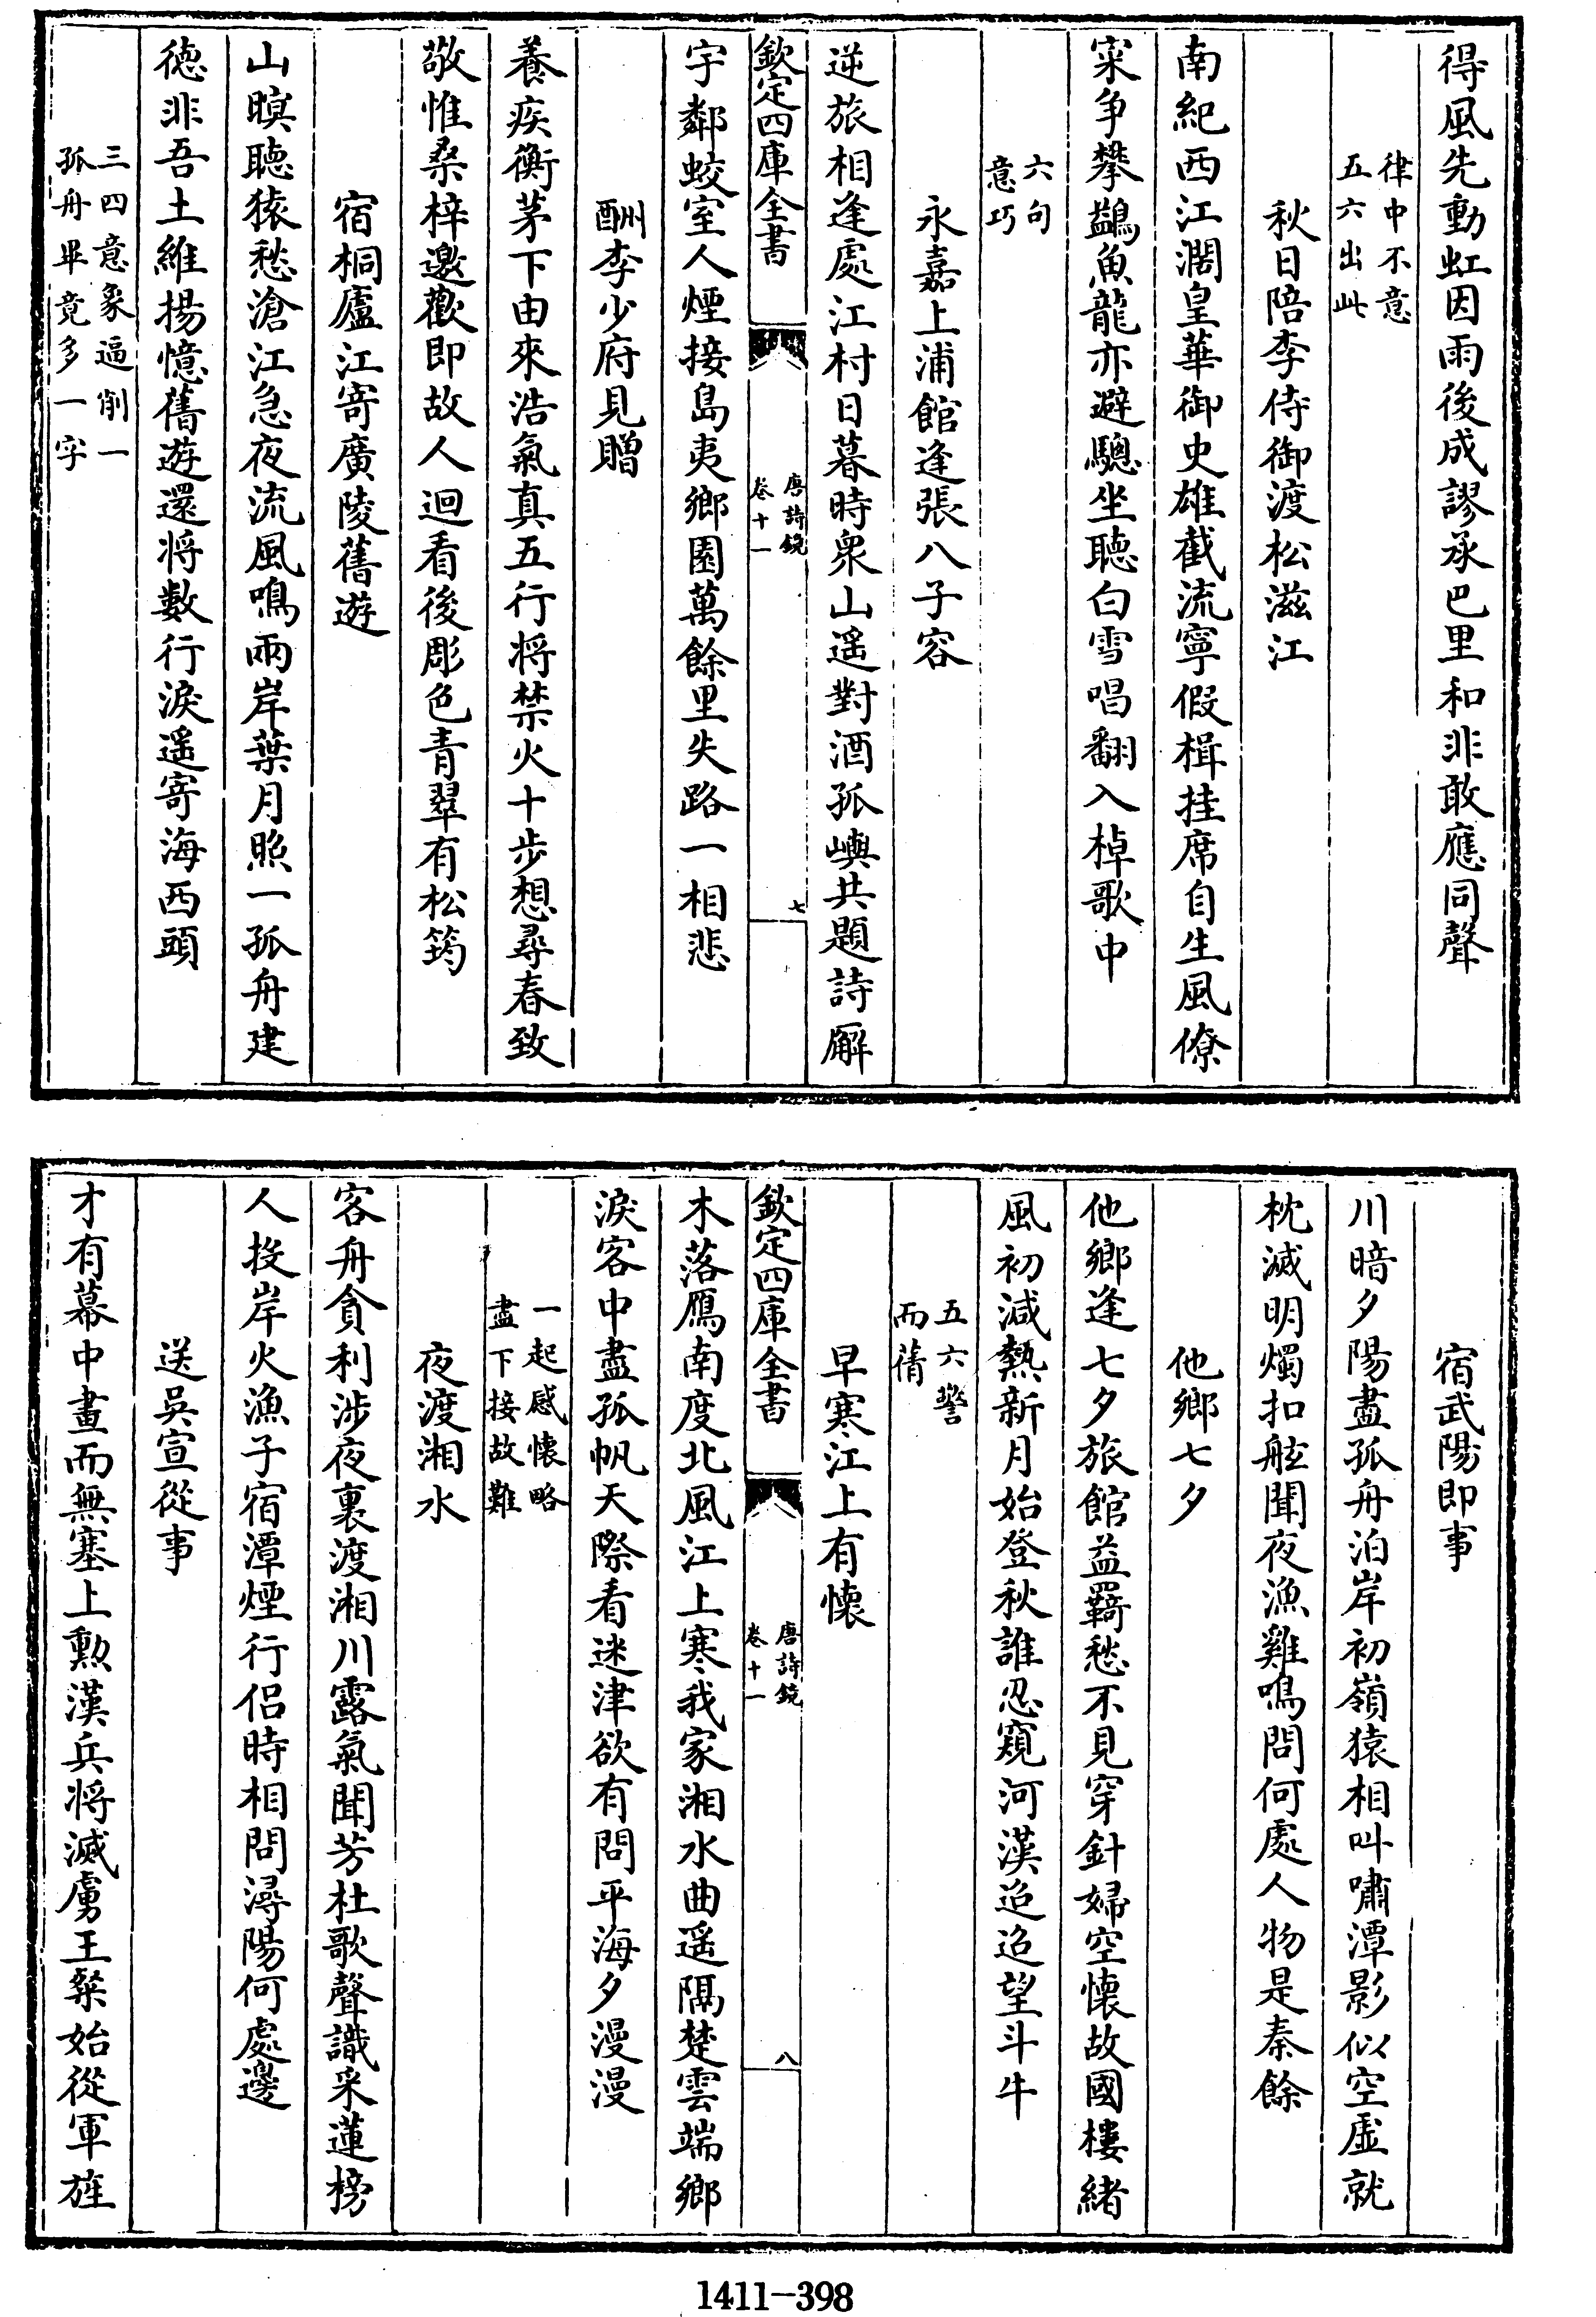 得風先動虹因雨後成謬承巴里和非敢應同聲
律中不意
五六出此
秋日陪李侍御渡松滋江
南紀西江濶皇華御史雄截流寧假楫挂席自生風僚
寀爭攀鷁魚龍亦避驄坐聽白雪唱翻入棹歌中
六句
意巧
永嘉上浦館逢張八子容
逆旅相逢處江村日暮時衆山遥對酒孤嶼共題詩廨
欽定四庫全書
唐詩鏡
卷十一
七
宇鄰蛟室人煙接島夷鄉園萬餘里失路一相悲
酬李少府見贈
養疾衡茅下由來浩氣真五行将禁火十步想尋春致
敬惟桑梓邀歡即故人迴看後彫色青翠有松筠
宿桐廬江寄廣陵舊遊
山暝聴猿愁滄江急夜流風鳴兩岸葉月照一孤舟建
徳非吾土維揚憶舊遊還将數行淚遥寄海西頭
三四意象逼削一
孤舟畢竟多一字
宿武陽即事
川暗夕陽盡孤舟泊岸初嶺猿相叫嘯潭影似空虛就
枕滅明燭扣舷聞夜漁雞鳴問何處人物是秦餘
他鄉七夕
他鄉逢七夕旅館益羇愁不見穿針婦空懷故國樓緒
風初減熱新月始登秋誰忍窺河漢迢迢望斗牛
五六警
而蒨
早寒江上有懷
欽定四庫全書
唐詩鏡
卷十一
八
木落鴈南度北風江上寒我家湘水曲遥隔楚雲端鄉
淚客中盡孤帆天際看迷津欲有問平海夕漫漫
一起感懷略
盡下接故難
夜渡湘水
客舟貪利涉夜裏渡湘川露氣聞芳杜歌聲識采蓮榜
人投岸火漁子宿潭煙行侶時相問潯陽何處邊
送吳宣從事
才有幕中畫而無塞上勲漢兵将滅虜王粲始從軍旌
1411—398